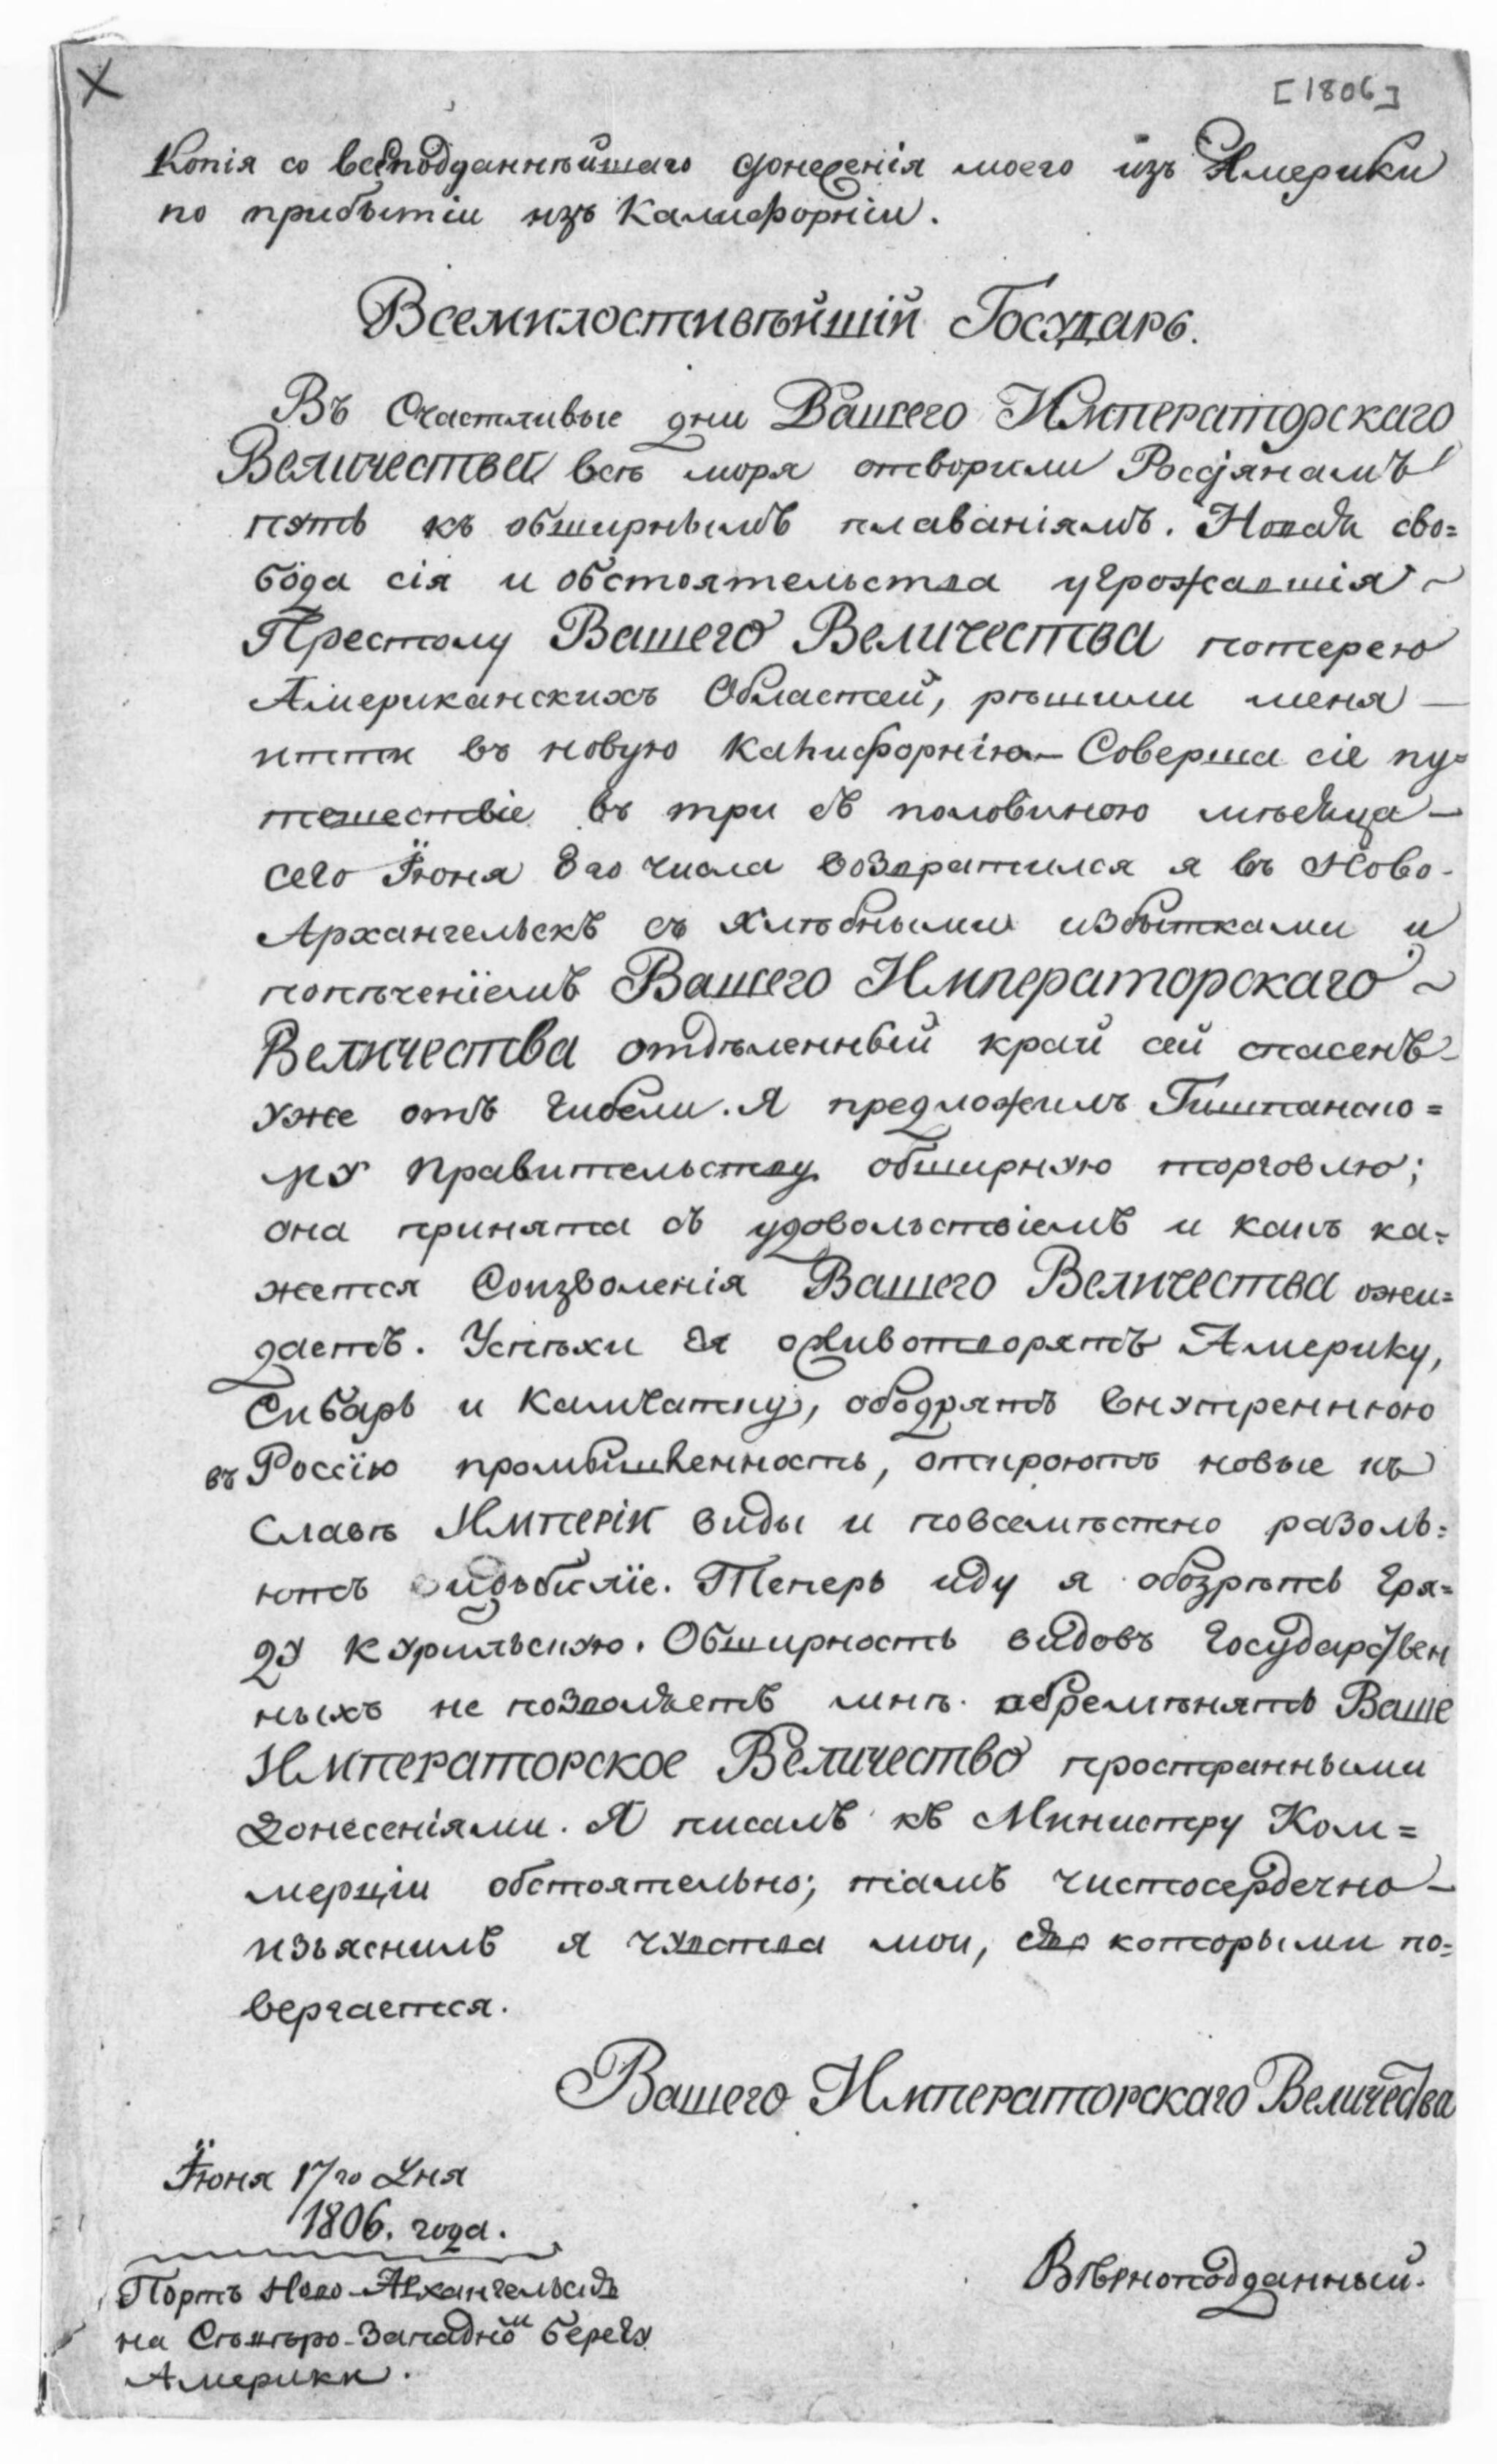 [1806]
Копія со всеподданнѣйшаго донесенія моего изъ Америки
по прибытіи изъ Калифорніи.
Всемилостивѣйшій Государь.
Въ Счастливые дни Вашего Императорскаго
Величества всѣ моря отворили Россіянамъ
путь къ обширнымъ плаваніямъ. Новая сво=
бода сія и обстоятельства угрожавшія
Престолу Вашего Величества потерею
Американскихъ Областей, рѣшили меня —
итти въ новую Калифорнію — Соверша сіе пу=
тешествіе въ три съ половиною мѣсяца —
сего Іюня 8го числа возвратился я въ Ново-
Архангельскъ съ хлѣбными избытками и
попеченіемъ Вашего Императорскаго
Величества отдѣленный край сей спасенъ
уже отъ гибели. Я предложилъ Гишпанско=
му правительству обширную торговлю;
она принята съ удовольствіемъ и какъ ка=
жется Соизволенія Вашего Величества ожи=
даетъ. Успѣхи ея оживотворятъ Америку,
Сибирь и Камчатку, ободрятъ внутреннюю
въ Россію промышленность, откроютъ новые къ
Славѣ Имперіи виды и повсемѣстно разоль=
ютъ изобиліе. Теперь иду я обозрѣть гря=
ду Курильскую. Обширность видовъ государствен
ныхъ не позволяетъ мнѣ обременять Ваше
Императорское Величество пространными
донесеніями. Я писалъ къ Министру Ком=
мерціи обстоятельно; тамъ чистосердечно —
изъяснилъ я чувства мои, съ которыми по=
вергается.
Вашего Императорскаго Величества
Іюня 17го Дня
1806. года.
Вѣрноподданный.
Портъ Ново-Архангельскъ
на Сѣверо-Западной берегу
Америки.